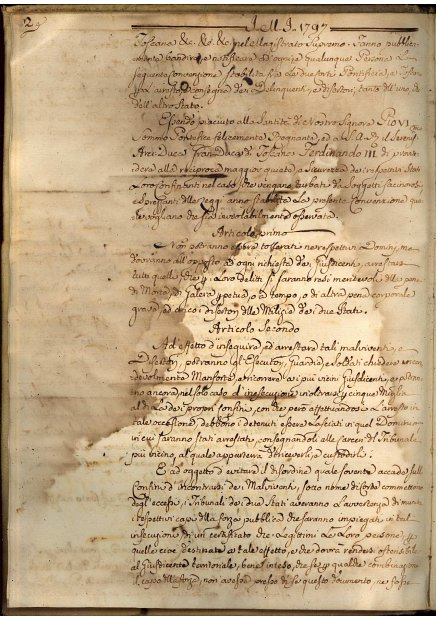 2.
J. M. J. 1797
Toscana &c. &c. &c. nel Magistrato Supremo. Fanno pubblica-
mente bandire, e notificare ad ogni e qualunque Persona la se-
guente Convenzione stabilita fra le due Corti Pontificia, e
arresto, e consegna dei Delinquenti, e disertori tanto dell'uno, che
dell'altro Stato.
Essendo piaciuto alla Santità di Nostro Signore Pio VI.
Sommo Pontefice felicemente Regnante, ed a S. A. R. il Serenis.
Arci-Duca Gran Duca di Toscana Ferdinando III. di
alla reciproca maggior quiete, e sicurezza dei rispettivi Stati
Loro confinanti nel caso che vengano turbati da Soggetti facinorosi
e sprezzanti delle Leggi anno stabilita la presente Convenzione, che
vogliano che sia inviolabilmente osservata.
Articolo primo
Non potranno esser tollerati nei rispettivi Dominj, ma
dovranno all'opposto, ad ogni richiesta dei Giusdicenti, arrestarsi
tutti quelli che per i Loro delitti si saranno resi meritevoli della pena
di Morte, di Galera perpetua, o a tempo, o di altra pena corporale
grave, ed ancora i disertori delle Milizie dei due Stati.
Articolo Secondo
Ad effetto d'inseguire, ed arrestare tali malviventi, e
Disertori, potranno gl'Esecutori, Guardie, e Soldati chiedere
volmente Manforte, e ricorrere ai più vicini Giusdicenti, e potran-
no ancora, nel solo caso d'inseguzione inoltrarsi cinque Miglia
al di là dei proprj confini, con che però effettuandosi l'arresto in
tale occasione, debbano i detenuti essere lasciati in quel Dominio
in cui saranno stati arrestati, consegnandoli alle carceri del Tribunale
più vicino, al quale apparterrà di riceverli, e custodirli.
E ad oggetto d'evitare il disordine quale sovente accade sulli
Confini d'incontrarsi dei Malviventi, sotto nome di Corte commettere
degli eccessi, i Tribunali dei due Stati averanno l'avvertenza di munire
i rispettivi capi della forza pubblica che saranno impiegati in tal
insecuzione di un certificato che legittimi le Loro persone, e
quelle ove destinate a tale effetto, e che dovrà rendersi ostensibile
al Giusdicente territoriale, bene inteso, che se per qualche combinazione
il capo della forza, non avesse presso di se questo documento ne fosse